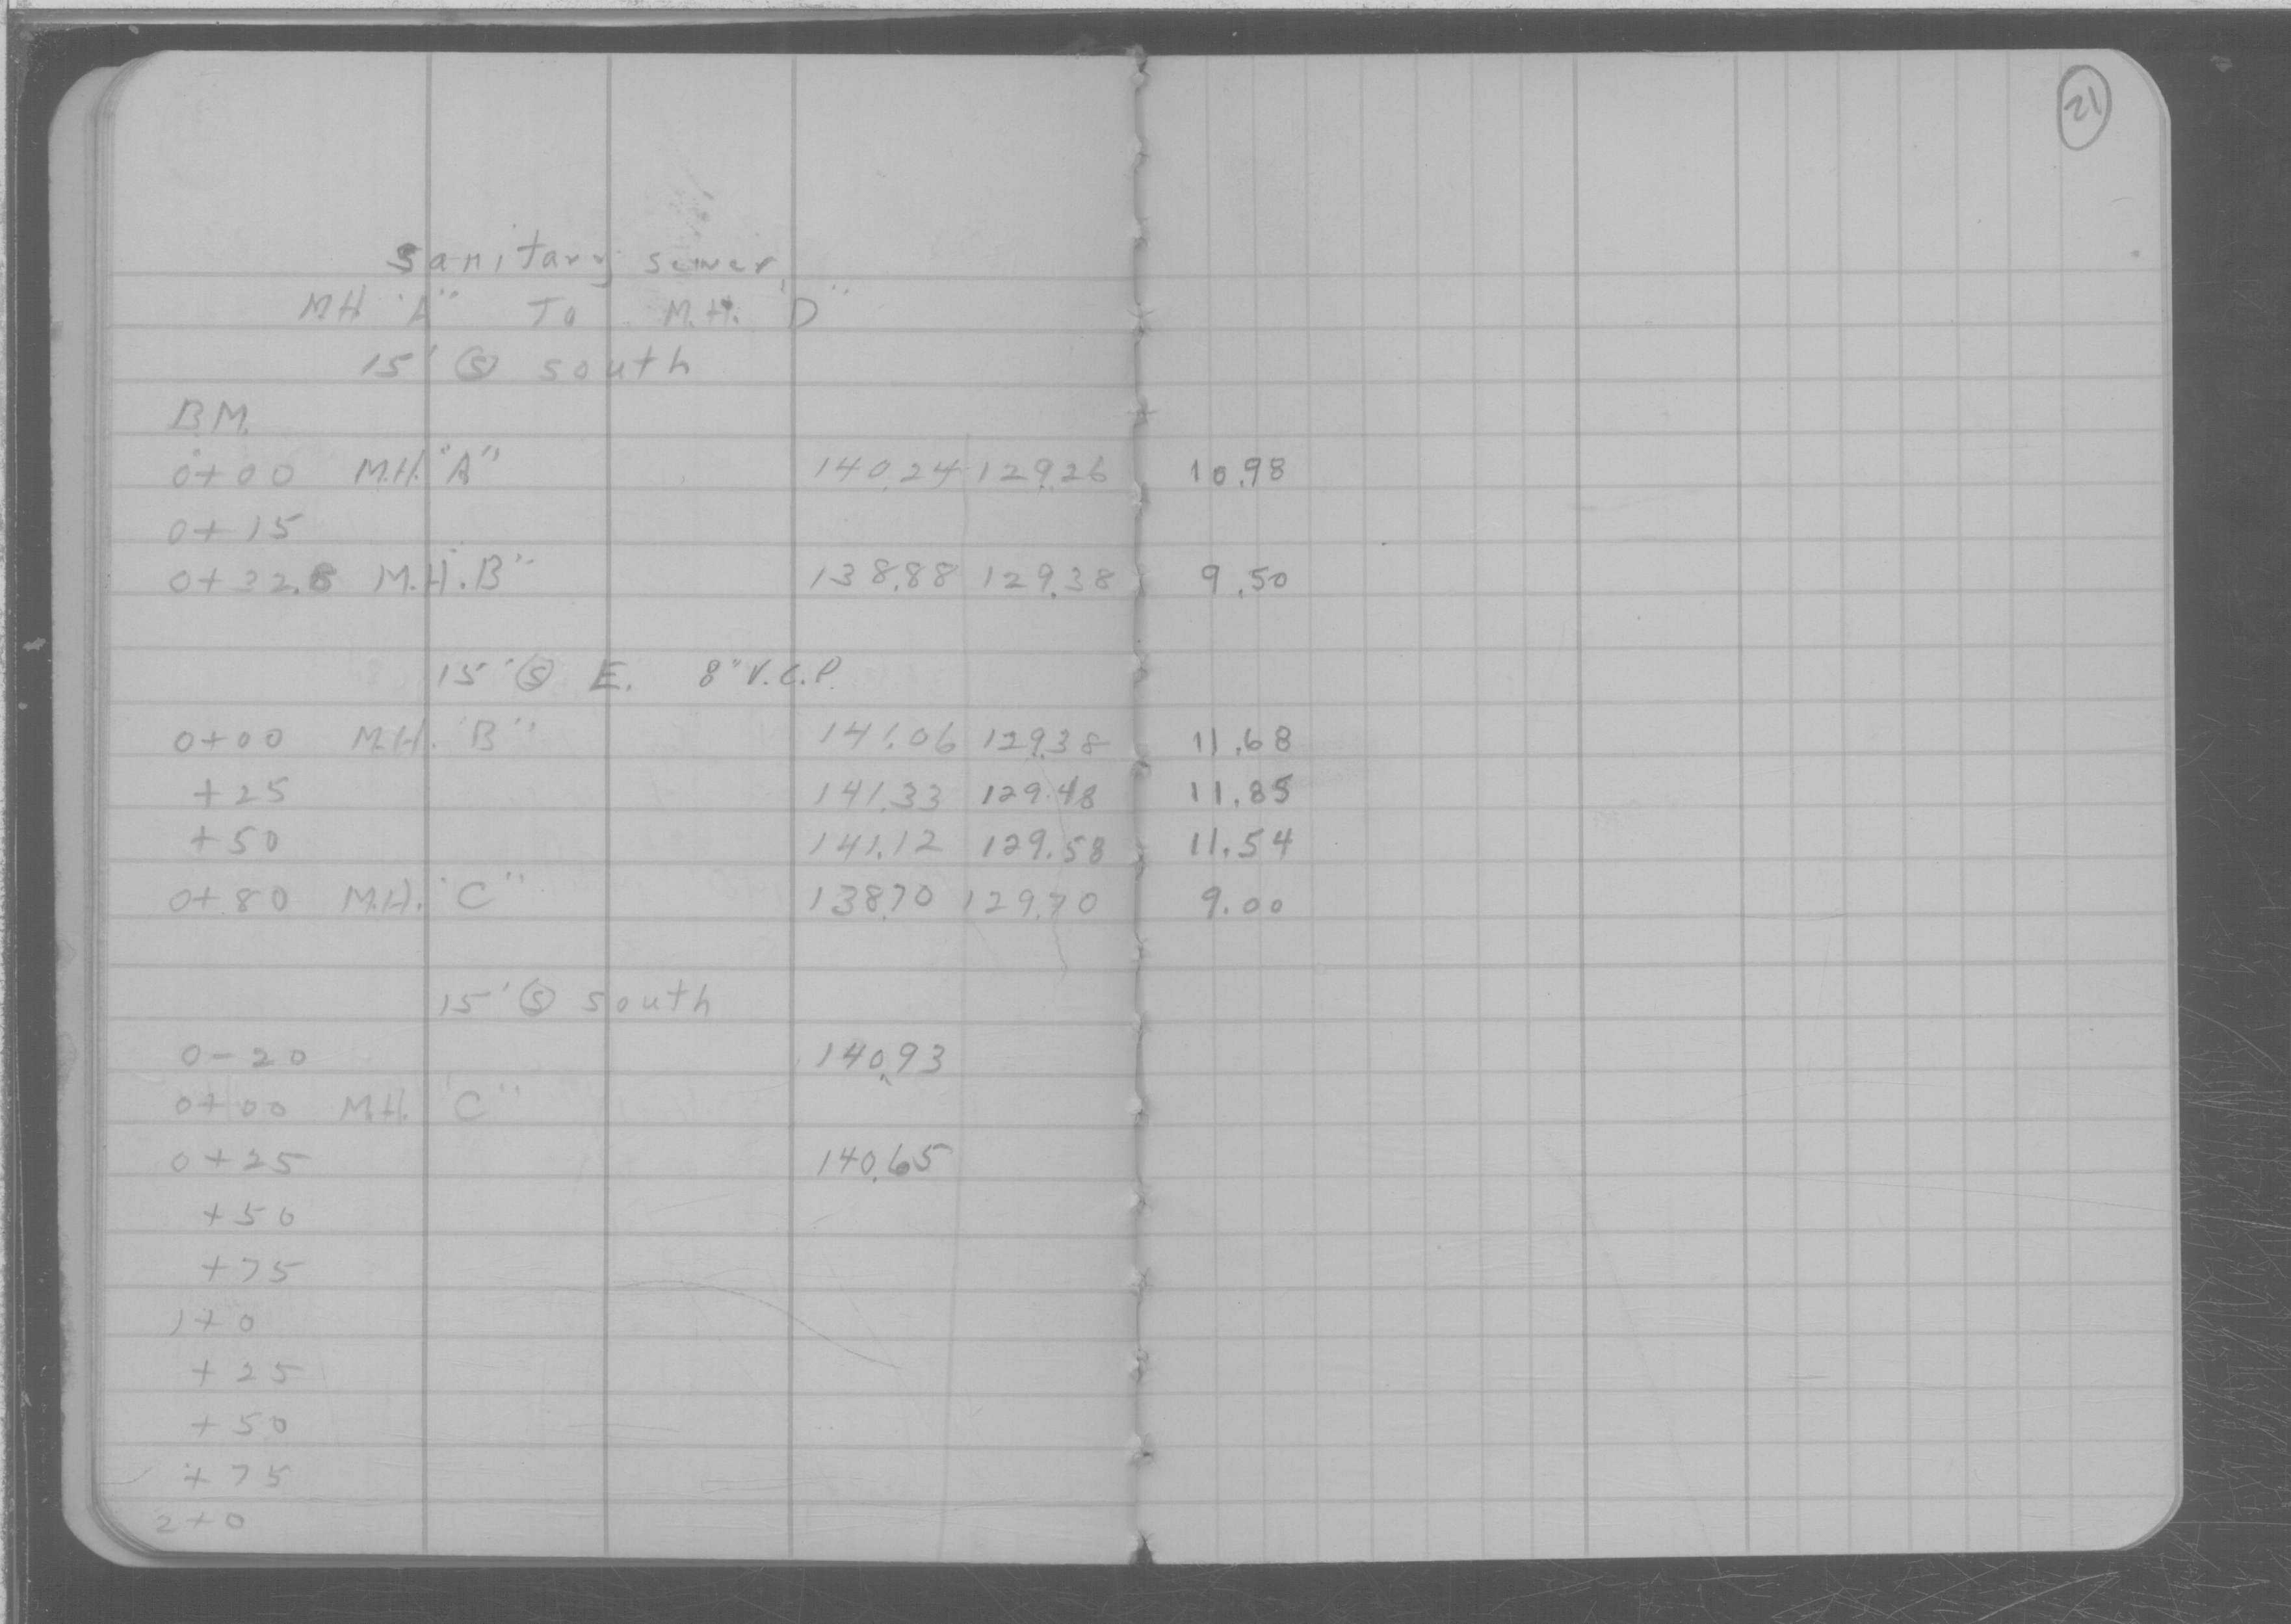 21
Sanitary Sewer
M.H. "A" To M.H. "D"
15' Ⓢ South
B.M.
0+00 M.H. "A" 140.24 129.26 10.98
0+15
M.H. "B" 138.88 129.38 9.50
15' Ⓢ E. 8" V.C.P.
0+00 M.H. "B" 141.06 129.38 11.68
+25 141.33 129.48 11.85
+50 141.12 129.58 11.54
0+80 M.H. "C" 138.70 129.70 9.00
15' Ⓢ South
0-20 140.93
0+00 M.H. "C"
0+25 140.65
+50
+75
1+0
+25
+50
+75
2+0